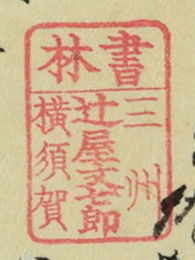 書林
三州
辻屋文七郎
横須賀